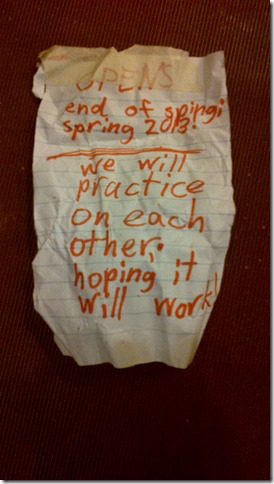 OPENS
end of spingi
spring 2013!
we will
practice
on each
other,
hoping it
will work!